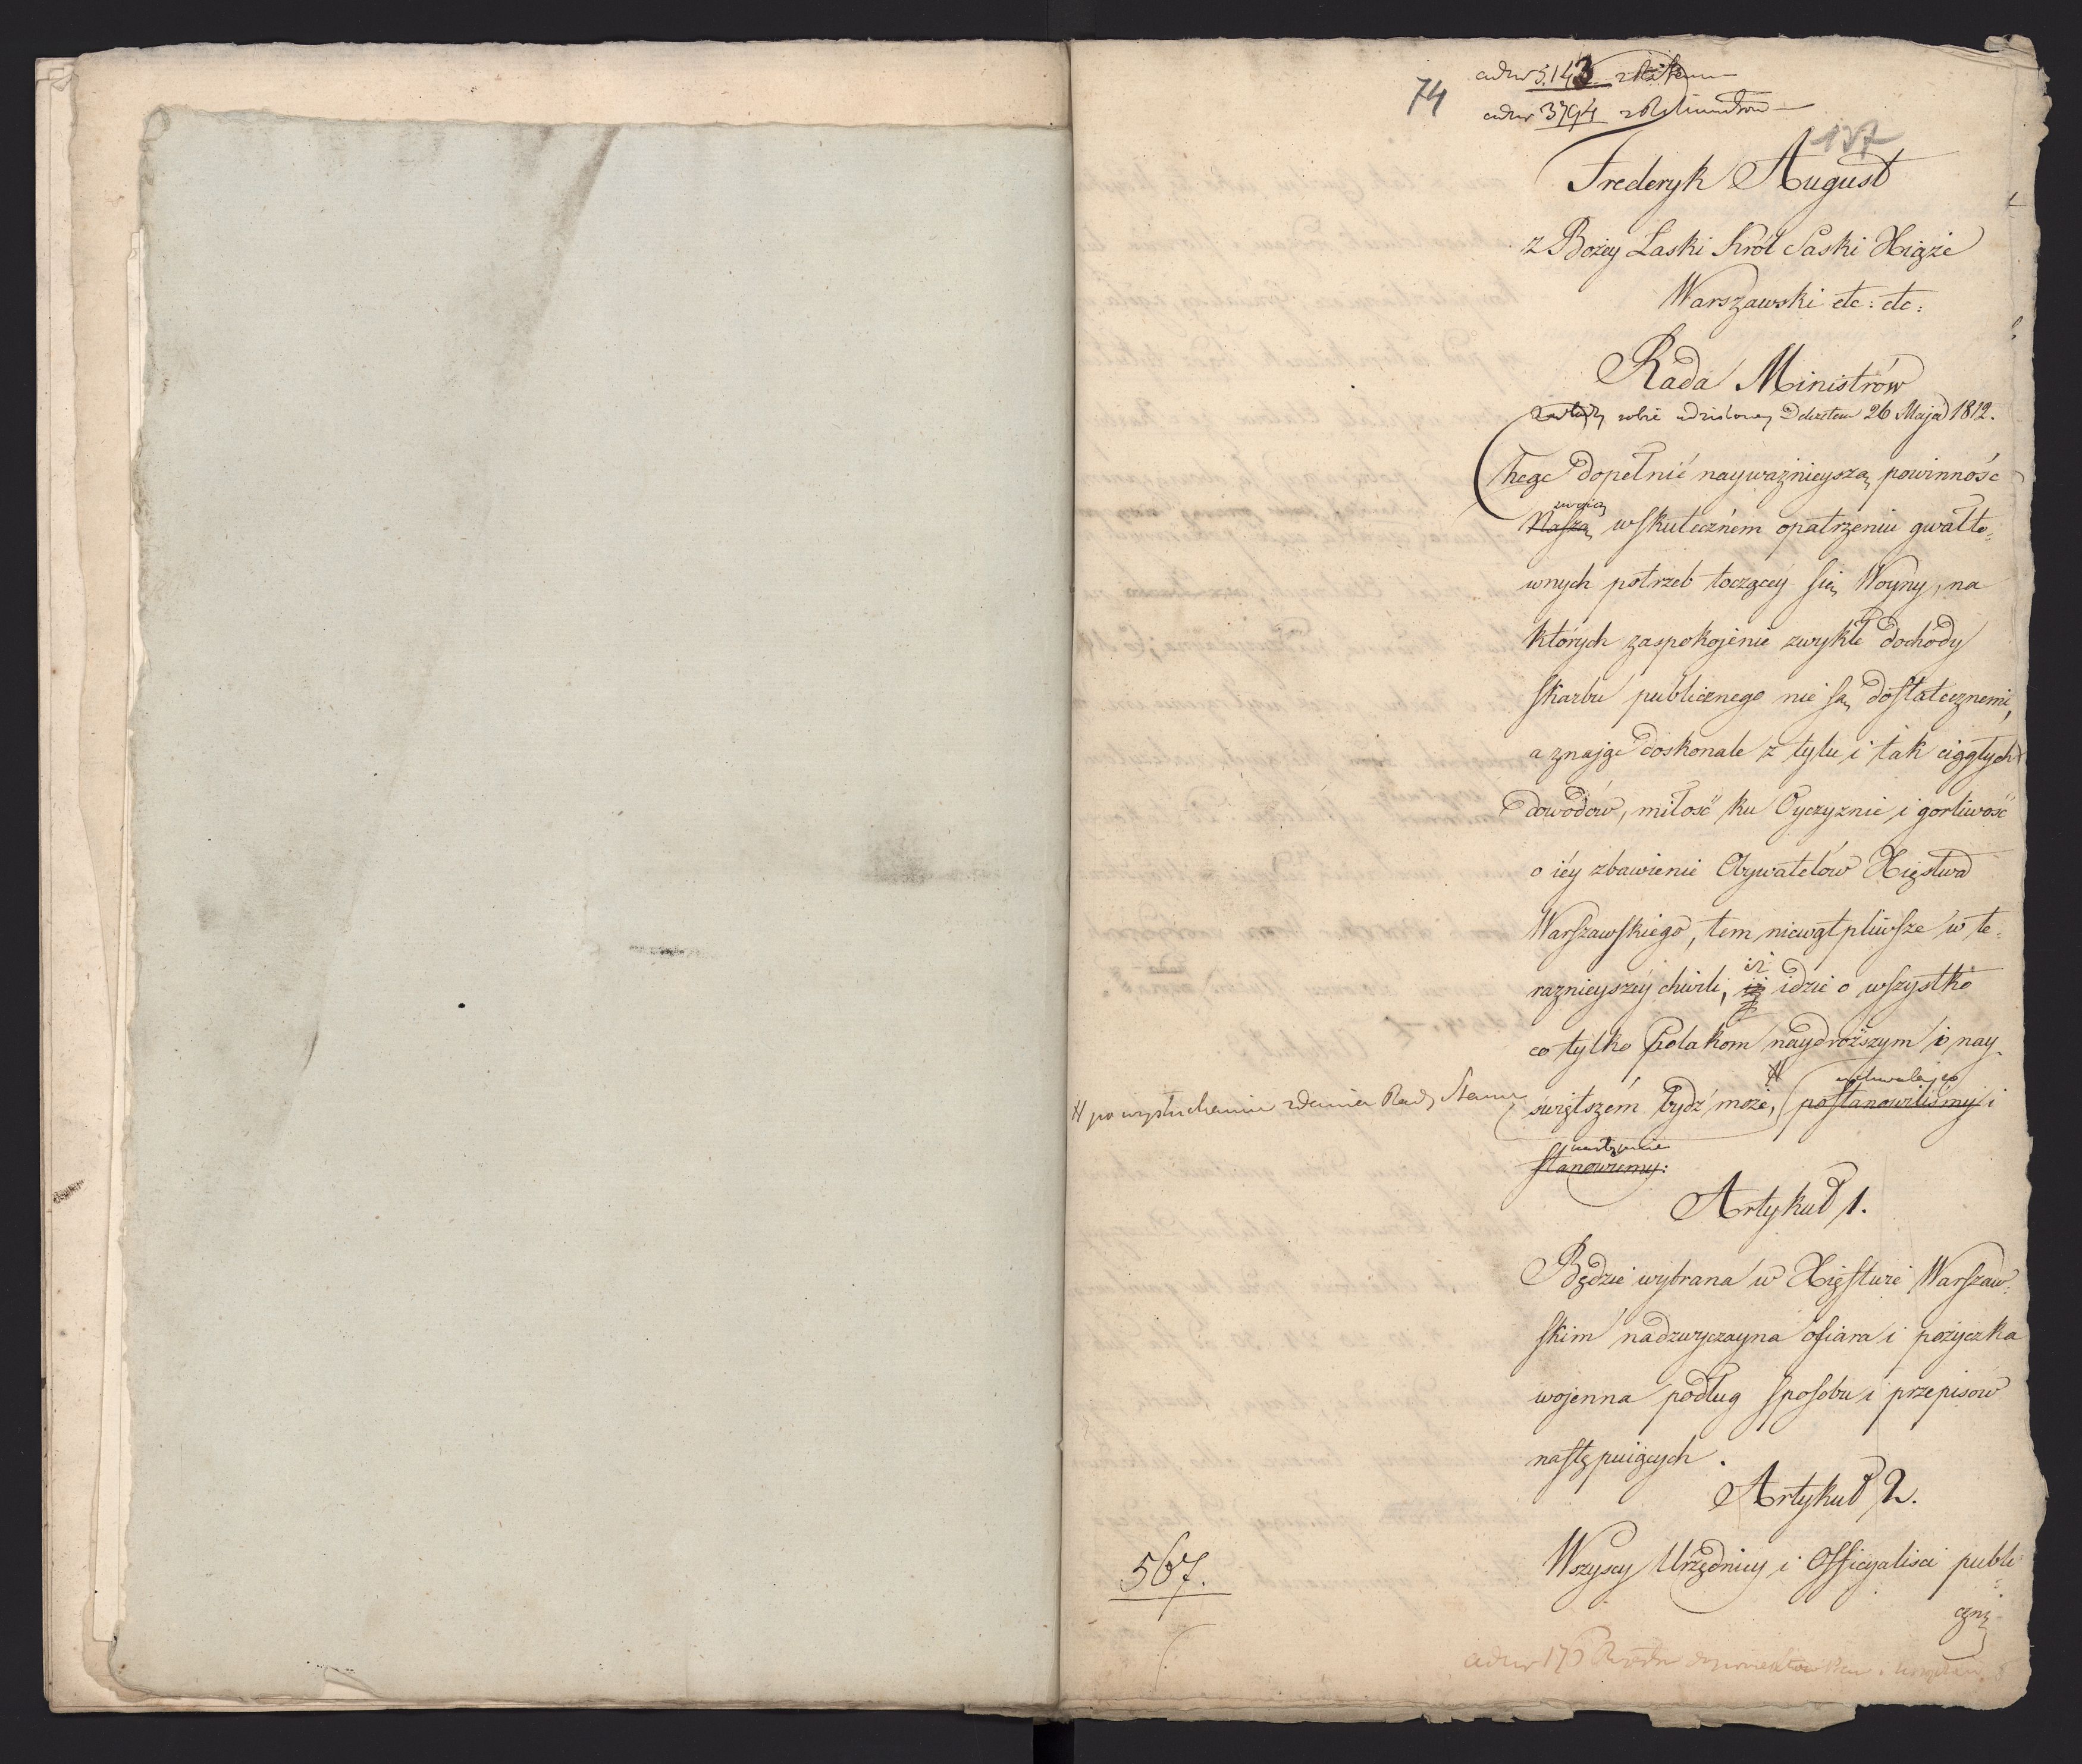 ad nr 5.143
74
ad nr 3794 z R. Ministrów
137
Frederyk August
z Bożey Łaski Król Saski Xiąże
Warszawski etc: etc:
Rada Ministrów
z władzy sobie udzieloney Dekretem 26 Maja 1812.
Chcąc dopełnić nayważnieyszą powinność
swoią
Naszą w skutecznem opatrzeniu gwałto=
wnych potrzeb toczącey się Woyny, na
których zaspokojenie zwykłe dochody
skarbu publicznego nie są dostatecznemi,
a znając doskonale z tylu i tak ciągłych
dowodów, miłość ku Oyczyznie i gorliwość
o iéy zbawienie Obywatelów Xięstwa
Warszawskiego, tem niewątpliwsze w te=
iż
raznieyszéy chwili, idzie o wszystko
co tylko Polakom naydroższym i nay=
# po wysłuchaniu zdania Rady Stanu
# uchwala co
świętszém bydź może, postanowiliśmy i
następuie
stanowiemy:
Artykuł 1.
Będzie wybrana w Xięstwie Warszaw=
skim nadzwyczayna ofiara i pożyczka
wojenna podług sposobu i przepisów
następuiących.
Artykuł 2.
Wszyscy Urzędnicy i Officyaliści publi=
czni
567.
ad nr 175